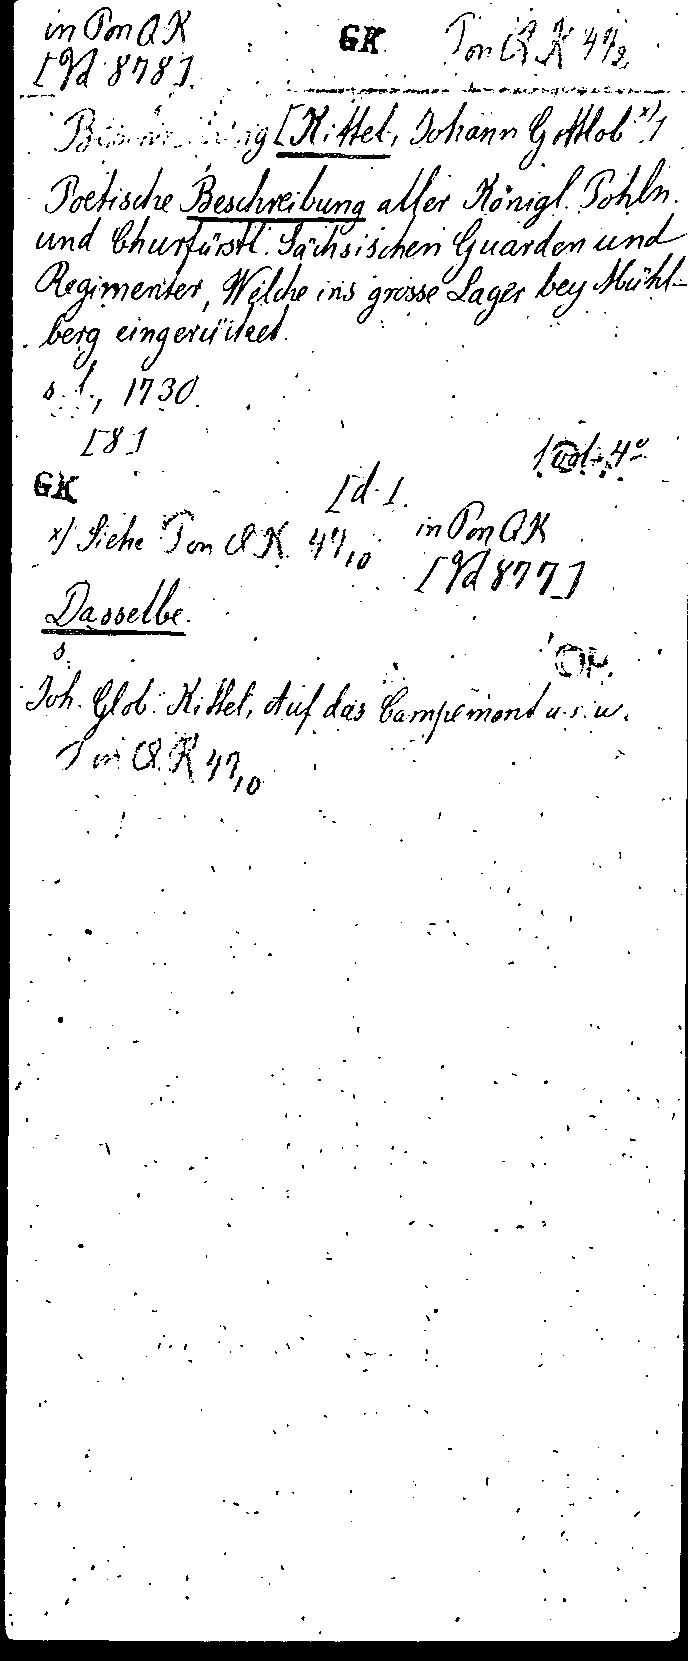 in Pon Q K
GK
Pon Q K 47,2
[Vd 878].
[Kittel, Johann Gottlob x)]
Poetische Beschreibung aller Königl. Pohln.
und Churfürstl. Sächsischen Guarden und
Regimenter, Welche ins grosse Lager bey Mühl-
berg eingerücket.
s. l., 1730.
[8]
1 vol. 4º
GK
x) Siehe Pon Q K 47,10
in Pon Q K
[Vd 877]
Dasselbe.
s.
Joh. Glob. Kittel, Auf das Campement u.s.w.
in Q K 47,10